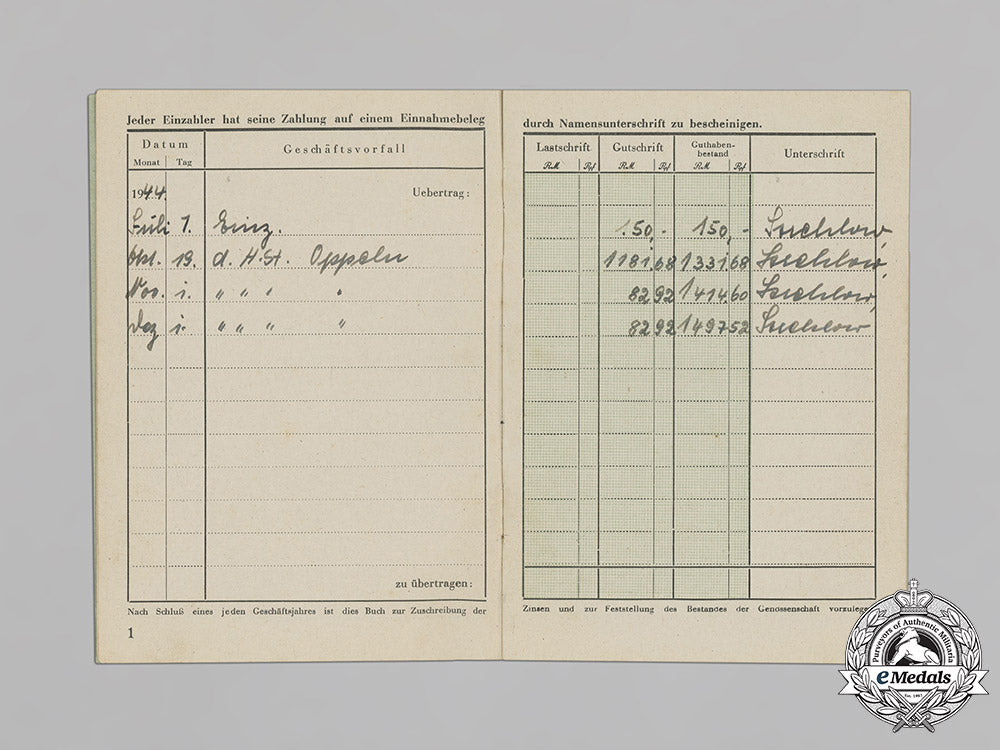 Jeder Einzahler hat seine Zahlung auf einem Einnahmebeleg durch Namensunterschrift zu bescheinigen.
Datum Geschäftsvorfall Lastschrift Gutschrift Guthaben-bestand Unterschrift
Monat Tag RM Rpf RM Rpf RM Rpf
1944. Uebertrag:
Juli 1. Einz. 150,- 150,-
Okt. 19. d. H.St. Oppeln 1181.68 1331.68
Nov. i. " " " " 82 92 1414.60
Dez i. " " " " 82 92 1497 52
zu übertragen:
Nach Schluß eines jeden Geschäftsjahres ist dies Buch zur Zuschreibung der Zinsen und zur Feststellung des Bestandes der Genossenschaft vorzulege
1
Purveyors of Authentic Militaria
eMedals